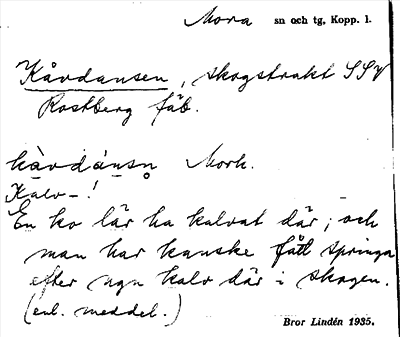 Mora sn och tg, Kopp. l.
Kåvdansen, skogstrakt SSV
Rostberg fäb.
kåvdánsn Mork.
Kalv-!
En ko lär ha kalvat där; och
man har kanske fått springa
efter ngn kalv där i skogen.
(enl. meddel.)
Bror Lindén 1935.